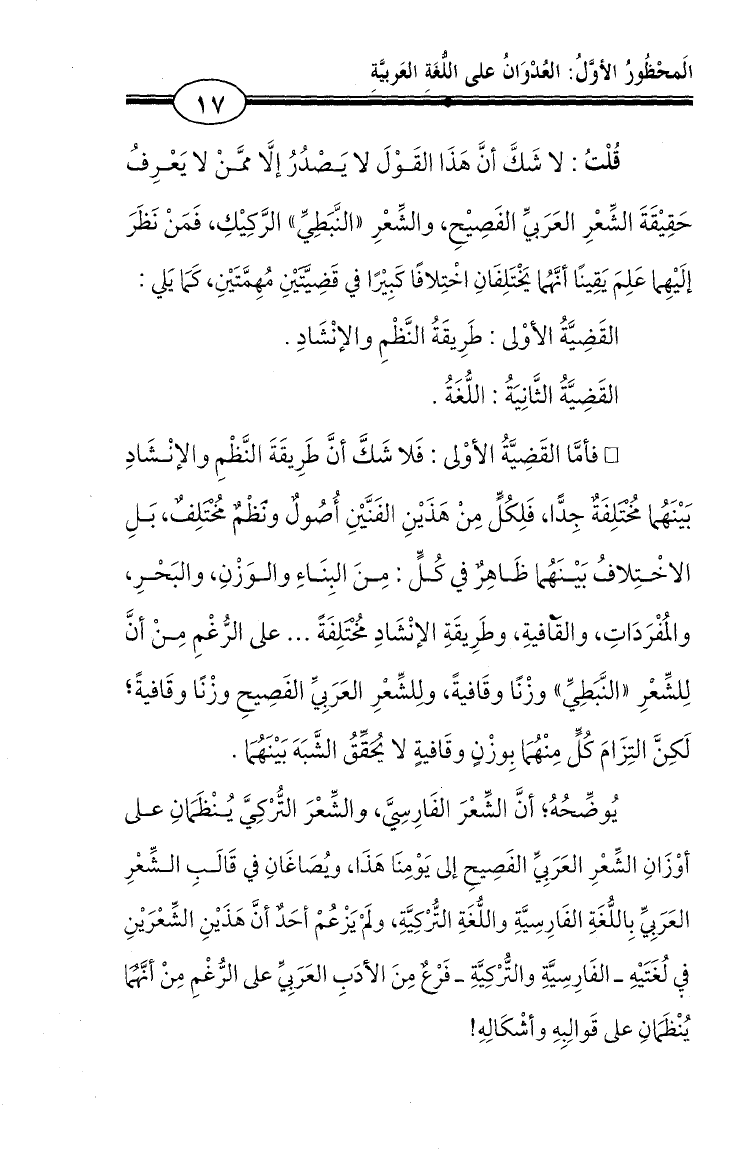 المَحْظُورُ الأوَّلُ: العُدْوَانُ على اللُّغَةِ العَرَبيَّةِ
١٧
قُلْتُ : لا شَكَّ أنَّ هَذَا القَوْلَ لا يَصْدُرُ إلَّا ممَّنْ لا يَعْرِفُ
حَقِيْقَةَ الشِّعْرِ العَرَبيِّ الفَصِيْحِ، والشِّعْرِ «النَّبَطِيِّ» الرَّكِيْكِ، فَمَنْ نَظَرَ
إلَيْهِما عَلِمَ يَقِينًا أنَّهُما يَخْتَلِفَانِ اخْتِلافًا كَبِيْرًا في قَضِيَّتَيْنِ مُهِمَّتَيْنِ، كَمَا يَلي :
القَضِيَّةُ الأوْلى : طَرِيقَةُ النَّظْمِ والإنْشَادِ .
القَضِيَّةُ الثَّانِيَةُ : اللُّغَةُ .
□ فأمَّا القَضِيَّةُ الأوْلى : فَلا شَكَّ أنَّ طَرِيقَةَ النَّظْمِ والإنْشَادِ
بَيْنَهُما مُخْتَلِفَةٌ جِدًّا، فَلِكُلٍّ مِنْ هَذَيْنِ الفَنَّيْنِ أُصُولٌ ونَظْمٌ مُخْتَلِفٌ، بَلِ
الاخْتِلافُ بَيْنَهُما ظَاهِرٌ في كُلٍّ : مِنَ البِنَاءِ والوَزْنِ، والبَحْرِ،
والمُفْرَدَاتِ، والقَافيةِ، وطَرِيقَةِ الإنْشَادِ مُخْتَلِفَةً ... على الرُّغْمِ مِنْ أنَّ
لِلشِّعْرِ «النَّبَطِيِّ» وزْنًا وقَافيةً، ولِلشِّعْرِ العَرَبيِّ الفَصِيحِ وزْنًا وقَافيةً؛
لَكِنَّ التِزَامَ كُلٍّ مِنْهُما بِوزْنٍ وقَافيةٍ لا يُحَقِّقُ الشَّبَهَ بَيْنَهُما .
يُوضِّحُهُ؛ أنَّ الشِّعْرَ الفَارِسِيَّ، والشِّعْرَ التُّرْكِيَّ يُنْظَمَانِ على
أوْزَانِ الشِّعْرِ العَرَبيِّ الفَصِيْحِ إلى يَوْمِنَا هَذَا، ويُصَاغَانِ في قَالَبِ الشِّعْرِ
العَرَبيِّ بِاللُّغَةِ الفَارِسِيَّةِ واللُّغَةِ التُّرْكِيَّةِ، ولَمْ يَزْعُمْ أحَدٌ أنَّ هَذَيْنِ الشِّعْرَيْنِ
في لُغَتَيْهِ ـ الفَارِسِيَّةِ والتُّرْكِيَّةِ ـ فَرْعٌ مِنَ الأدَبِ العَرَبيِّ على الرُّغْمِ مِنْ أنَّهُما
يُنْظَمَانِ على قَوالِبِهِ وأشْكَالِهِ!